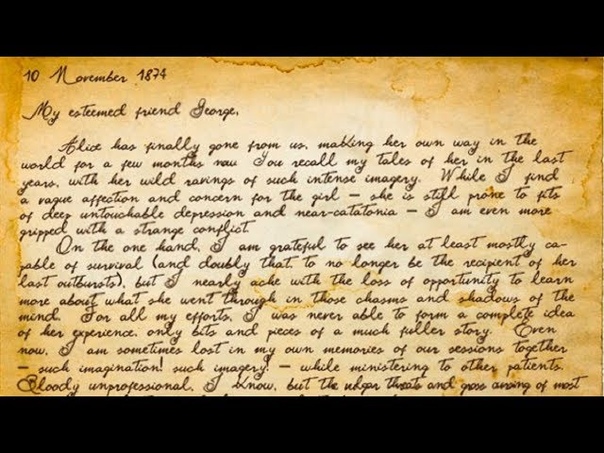 10 November 1874
My esteemed friend George,
Alice has finally gone from us, making her own way in the
world for a few months now. You recall my tales of her in the last
years, with her wild ravings of such intense imagery. While I find
a vague affection and concern for the girl – she is still prone to fits
of deep untouchable depression and near-catatonia – I am even more
gripped with a strange conflict.
On the one hand, I am grateful to see her at least mostly ca-
pable of survival (and doubly that, to no longer be the recipient of her
last outbursts), but I nearly ache with the loss of opportunity to learn
more about what she went through in those chasms and shadows of the
mind. For all my efforts, I was never able to form a complete idea
of her experience, only bits and pieces of a much fuller story. Even
now, I am sometimes lost in my own memories of our sessions together
– such imagination! such imagery! – while ministering to other patients.
Bloody unprofessional, I know, but the vulgar threats and gross of most